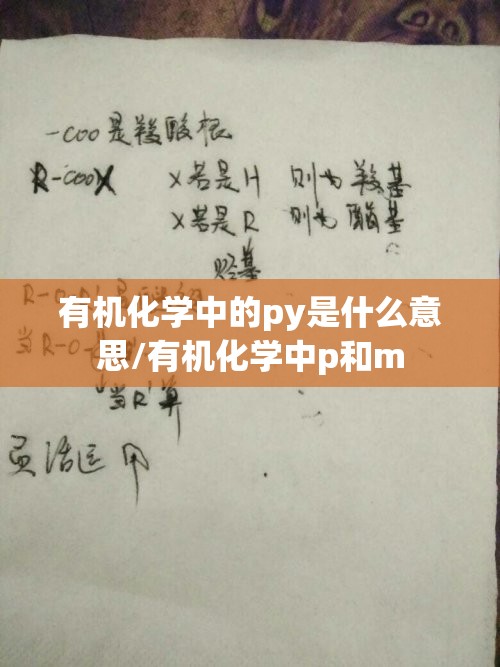 -coo是羧酸根
R-cooX X若是H 则为羧基
X若是R 则为酯基
烃基
R-O-
有机化学中的py是什么意
思/有机化学中p和m
当R-O-
当R'算
灵活运用